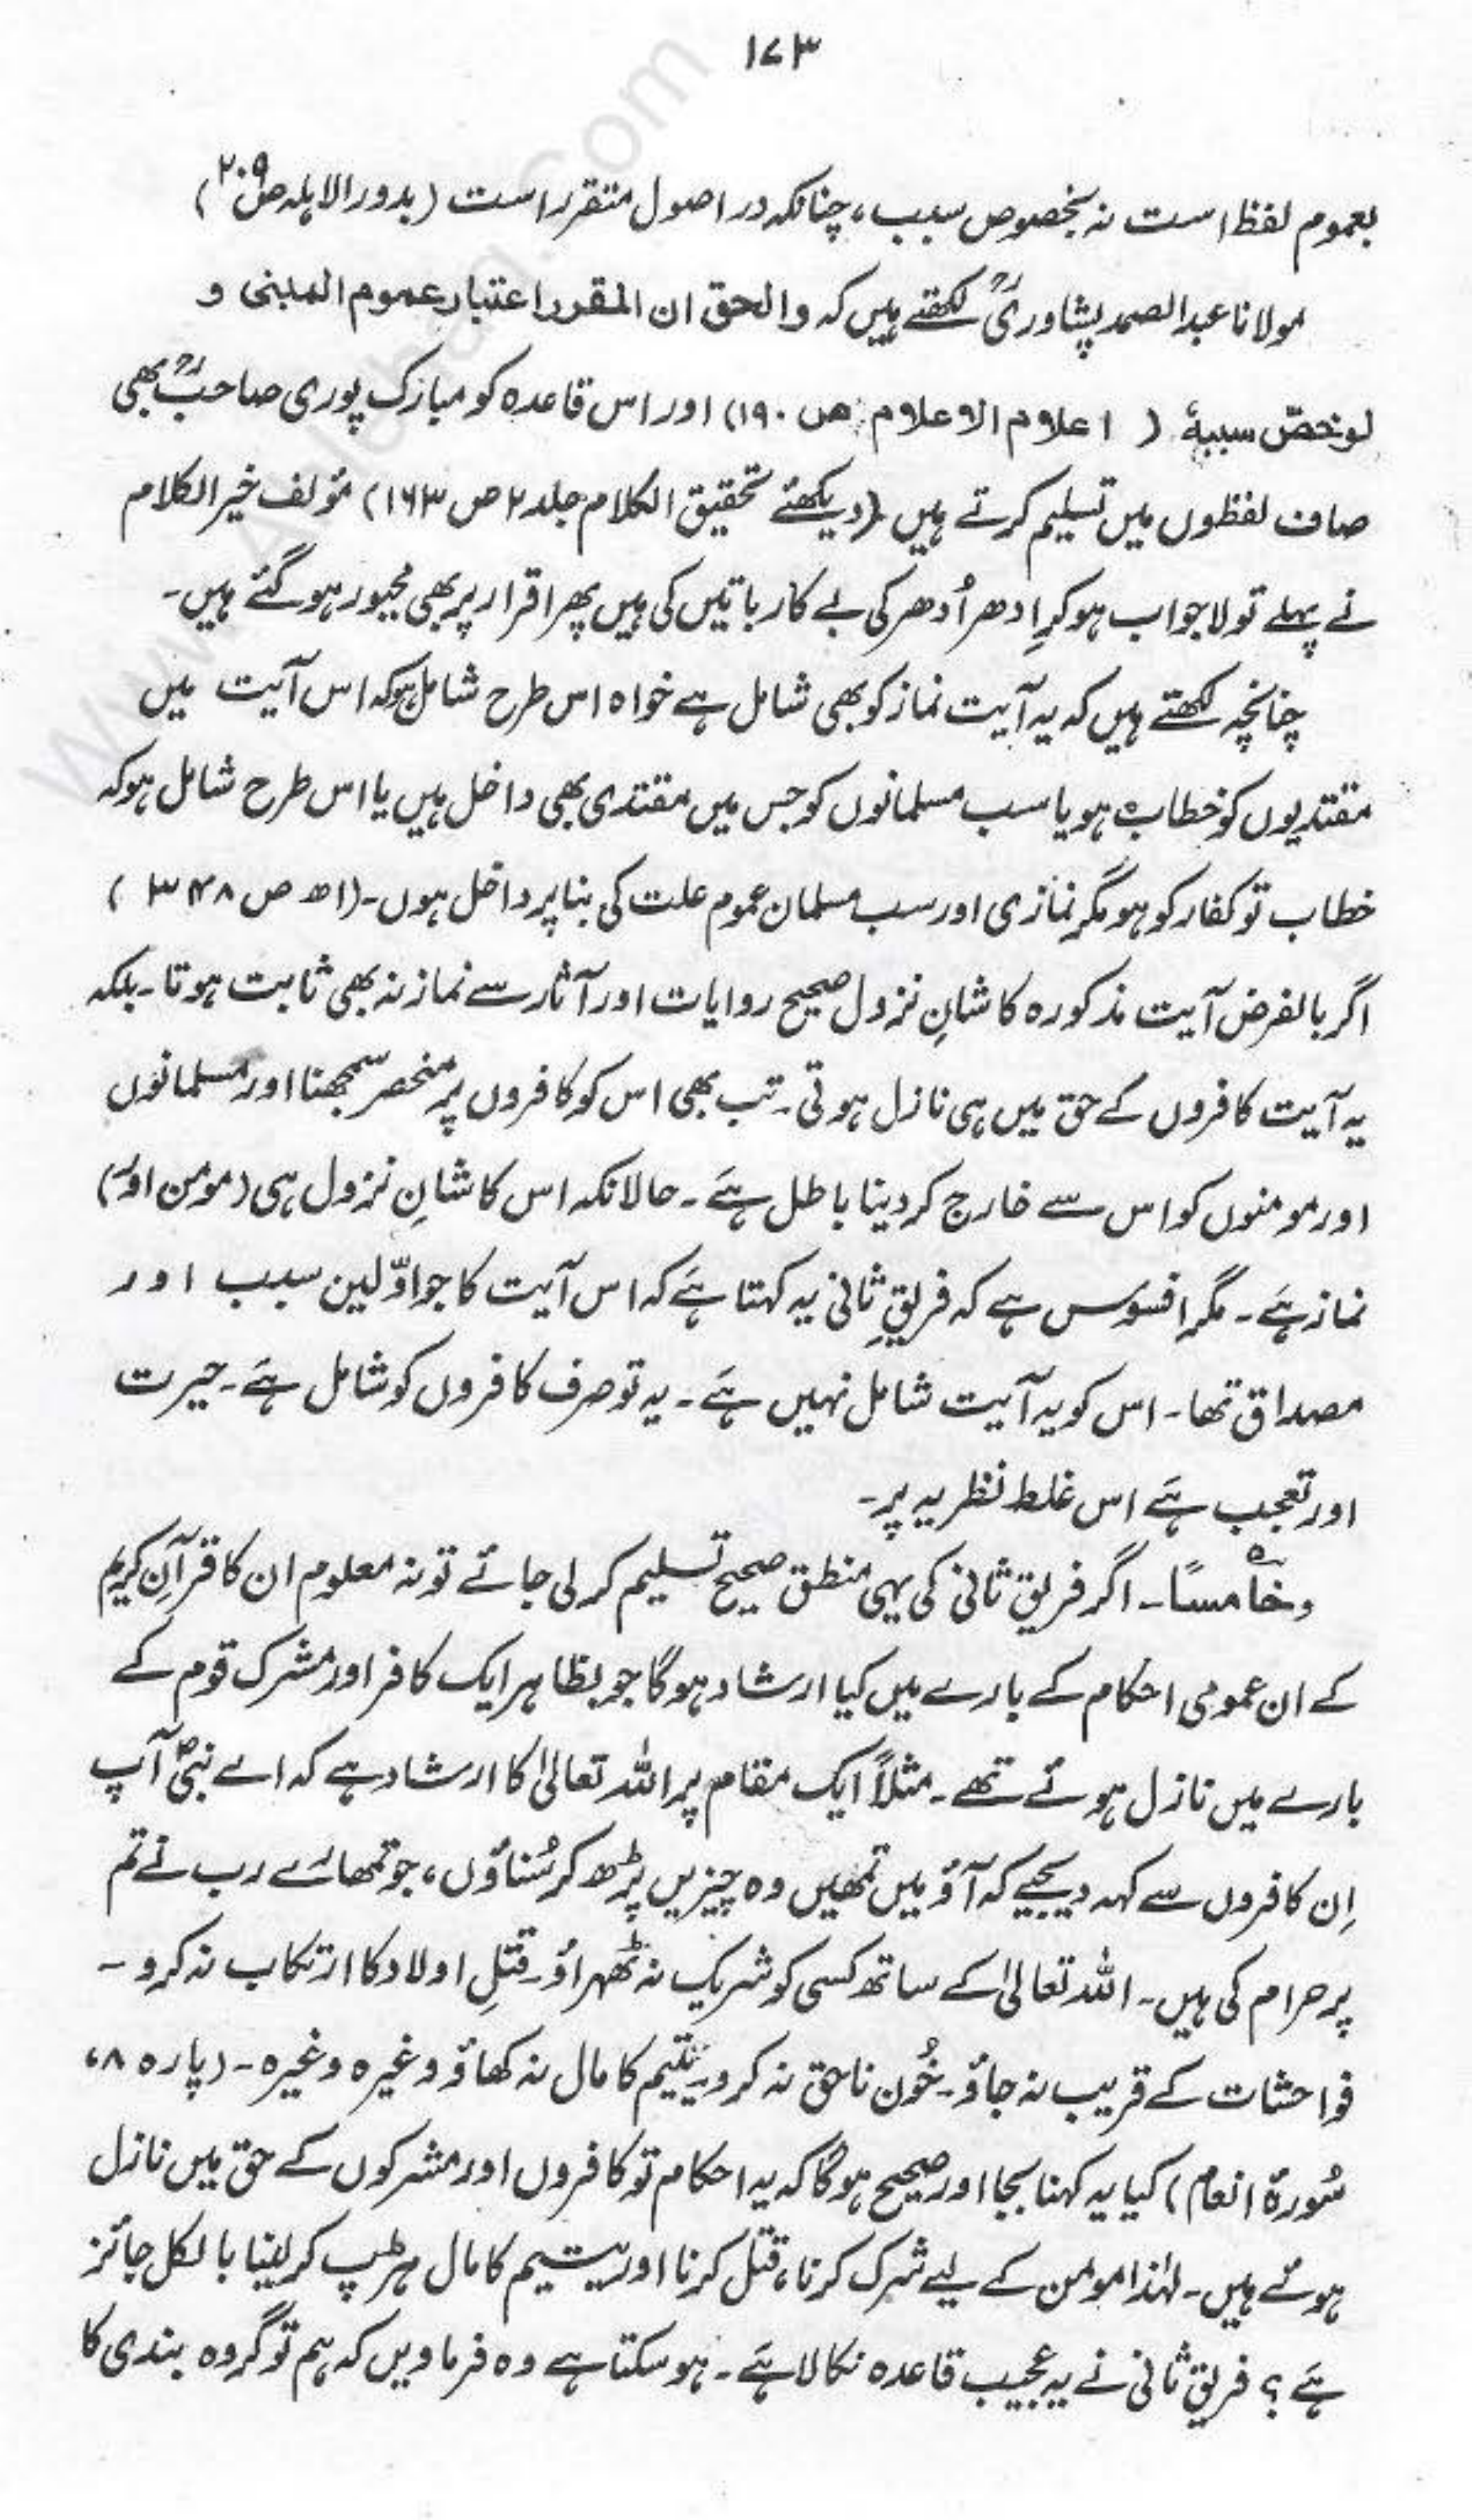 ۱۷۳
بعموم لفظ است نہ بخصوص سبب، چنانکہ در اصول متقرر است (بدور الاہلہ ص۲۰۹)
مولانا عبدالصمد پشاوریؒ لکھتے ہیں کہ والحق ان المقرر اعتبار عموم المبنی و
لو خصّ سببہٗ ( اعلام الاعلام ص ۱۹۰) اور اس قاعدہ کو مبارک پوری صاحبؒ بھی
صاف لفظوں میں تسلیم کرتے ہیں (دیکھئے تحقیق الکلام جلد ۲ ص ۱۶۳) مؤلف خیر الکلام
نے پہلے تو لاجواب ہو کر اِدھر اُدھر کی بے کار باتیں کی ہیں پھر اقرار پر بھی مجبور ہو گئے ہیں۔
چنانچہ لکھتے ہیں کہ یہ آیت نماز کو بھی شامل ہے خواہ اس طرح شامل ہو کہ اس آیت میں
مقتدیوں کو خطاب ہو یا سب مسلمانوں کو جس میں مقتدی بھی داخل ہیں یا اس طرح شامل ہو کہ
خطاب تو کفار کو ہو مگر نمازی اور سب مسلمان عموم علت کی بنا پر داخل ہوں۔ (اھ ص ۳۴۸ )
اگر بالفرض آیت مذکورہ کا شانِ نزول صحیح روایات اور آثار سے نماز نہ بھی ثابت ہوتا۔ بلکہ
یہ آیت کافروں کے حق میں ہی نازل ہوتی۔ تب بھی اس کو کافروں پر منحصر سمجھنا اور مسلمانوں
اور مومنوں کو اس سے خارج کر دینا باطل ہے۔ حالانکہ اس کا شانِ نزول ہی (مومن اور)
نماز ہے۔ مگر افسوس ہے کہ فریقِ ثانی یہ کہتا ہے کہ اس آیت کا جو اوّلین سبب اور
مصداق تھا۔ اس کو یہ آیت شامل نہیں ہے۔ یہ تو صرف کافروں کو شامل ہے۔ حیرت
اور تعجب ہے اس غلط نظریہ پر۔
وخامسًا۔ اگر فریق ثانی کی یہی منطق صحیح تسلیم کر لی جائے تو نہ معلوم ان کا قرآنِ کریم
کے ان عمومی احکام کے بارے میں کیا ارشاد ہوگا جو بظاہر ایک کافر اور مشرک قوم کے
بارے میں نازل ہوئے تھے۔ مثلاً ایک مقام پر اللہ تعالیٰ کا ارشاد ہے کہ اے نبیؐ آپ
اِن کافروں سے کہہ دیجیے کہ آؤ میں تمھیں وہ چیزیں پڑھ کر سُناؤں، جو تمھارے رب نے تم
پر حرام کی ہیں۔ اللہ تعالیٰ کے ساتھ کسی کو شریک نہ ٹھہراؤ۔ قتلِ اولاد کا ارتکاب نہ کرو۔
فواحشات کے قریب نہ جاؤ۔ خُون ناحق نہ کرو۔ یتیم کا مال نہ کھاؤ وغیرہ وغیرہ۔ (پارہ ۸،
سُورۂ انعام) کیا یہ کہنا بجا اور صحیح ہوگا کہ یہ احکام تو کافروں اور مشرکوں کے حق میں نازل
ہوئے ہیں۔ لہٰذا مومن کے لیے شرک کرنا، قتل کرنا اور یتیم کا مال ہڑپ کر لینا بالکل جائز
ہے؟ فریقِ ثانی نے یہ عجیب قاعدہ نکالا ہے۔ ہو سکتا ہے وہ فرماویں کہ ہم تو گروہ بندی کا